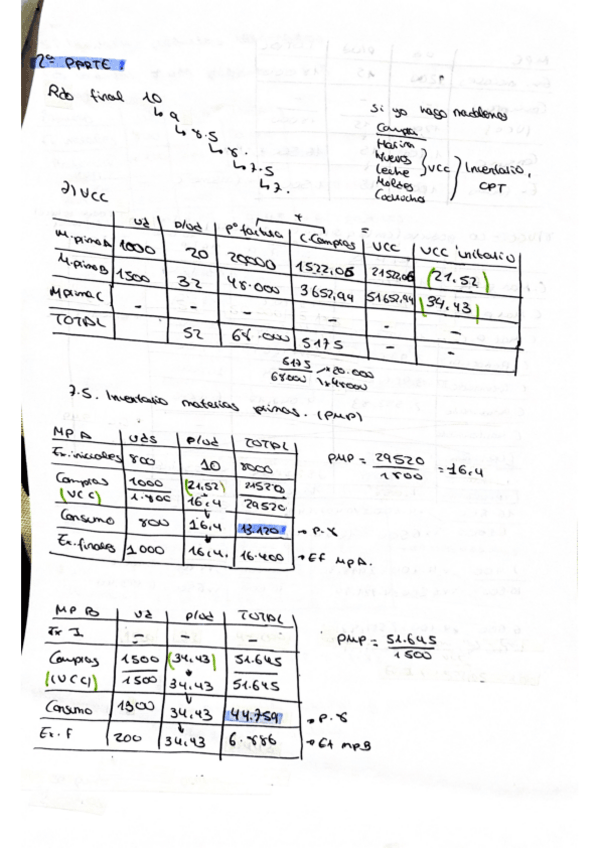 2ª PARTE:
Rdo final 10
↳ 9
↳ 8.5
↳ 8.
↳ 7.5
↳ 7.
Si yo hago
Compra
Harina
Huevos
Leche
Moldes
} UCC } Inventario, CPT
7) UCC
ud P/ud Pº factura + C.Compras = UCC UCC unitario
M.prima A 1000 20 20000 1522,06 21522,06 (21.52)
M.prima B 1500 32 48.000 3652,94 51652,94 (34.43)
M prima C - - - - - -
TOTAL 52 68.000 5175 - -
5175 ↗ x20.000
68000 ↘ x48000
7.5. Inventario materias primas. (PMP)
MP A Uds P/ud TOTAL
Ex.iniciales 800 10 8000
Compras 1000 (21,52) 21520
(UCC) 1.800 16,4 29520
Consumo 800 16,4 13.120 → P.8
Ex.finales 1000 16,4. 16.400 → Ef MPA.
PMP = 29520 / 1800 = 16,4
MP B Ud P/ud TOTAL
Ex I - - -
Compras 1500 (34.43) 51.645
(UCC) 1500 34.43 51.645
Consumo 1300 34.43 44.759 → P.8
Ex.F 200 34.43 6.886 → Ef MPB
PMP = 51.645 / 1500